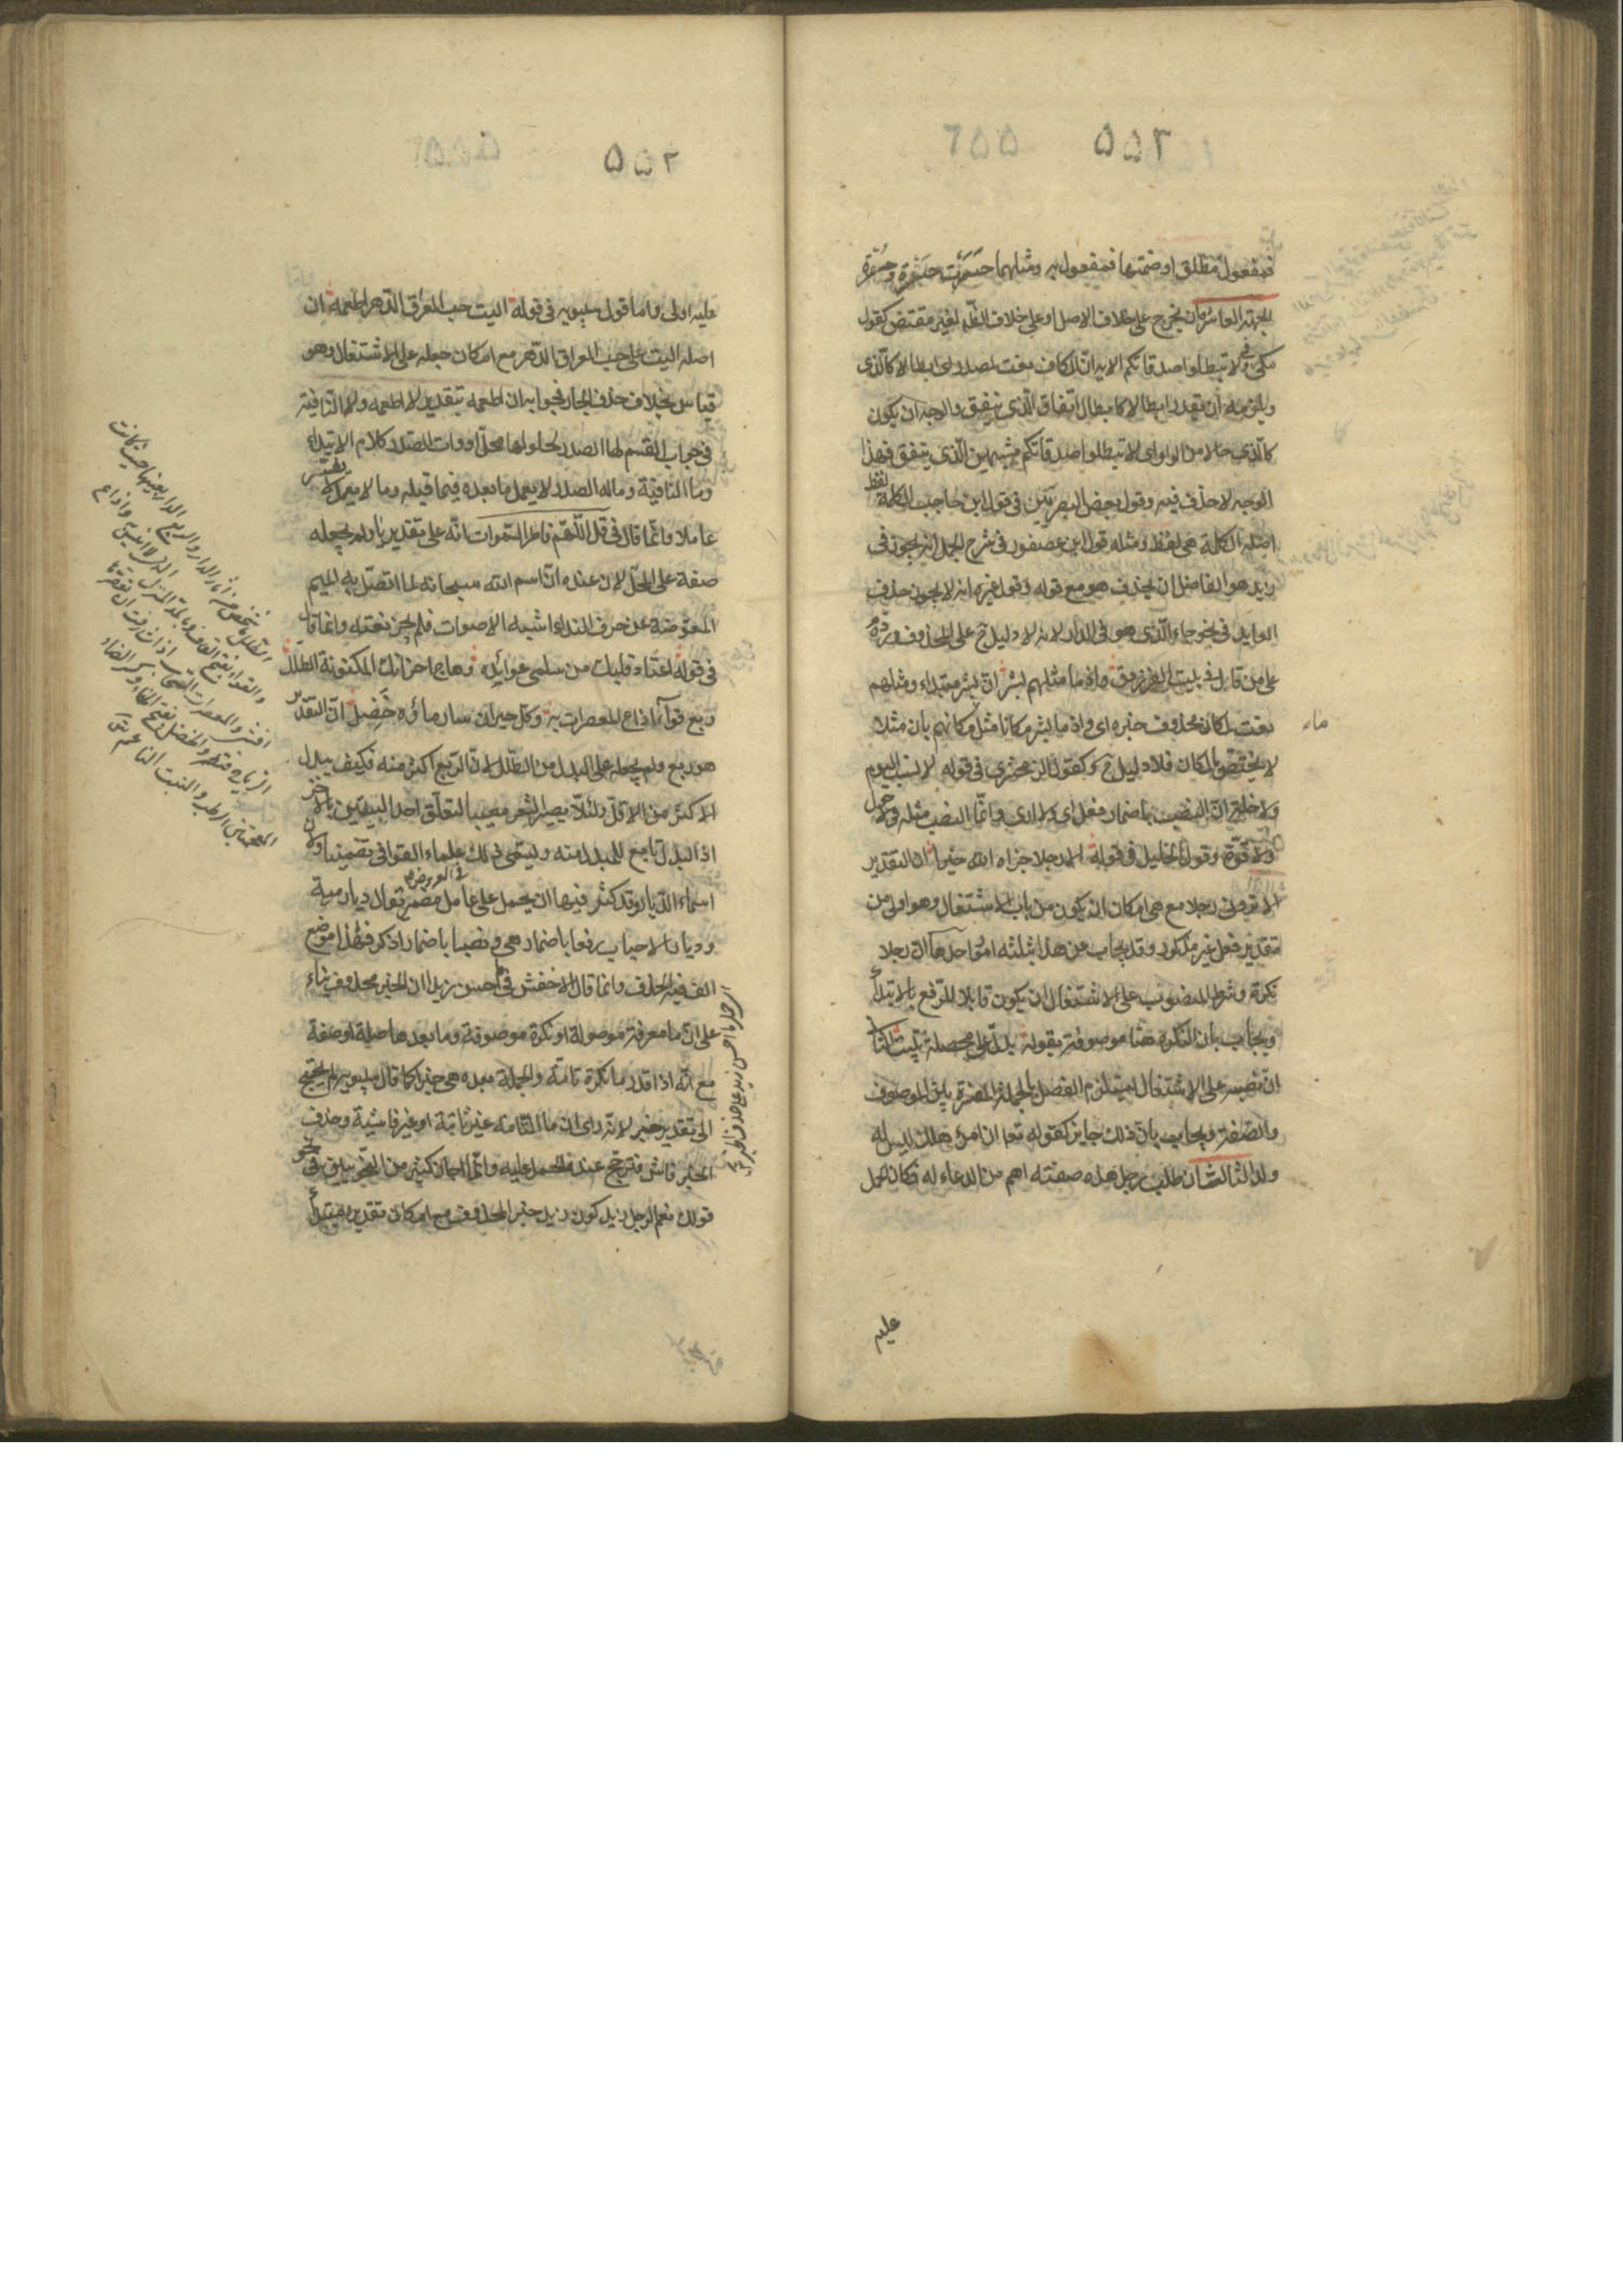 ٥٥٣
فمفعول مطلق او ضممتها فمفعول به ومثلهما حسوت حَسْوَة وحُسْوَة
الجهة العاشرة ان يخرج على خلاف الاصل او على خلاف الظاهر لغير مقتض كقول
مكى فى ولا تبطلوا صدقاتكم الاية ان الكاف نعت لمصدر اى ابطالا كالذى
ويلزمه ان يقدر ابطالا كابطال انفاق الذى ينفق والوجه ان يكون
كالذى حالا من الواو اى لا تبطلوا صدقاتكم مشبهين الذى ينفق فهذا
الوجه لا حذف فيه وقول بعض البصريين فى قول ابن حاجب الكلمة لفظ
اصله الكلمة هى لفظ ومثله قول ابن عصفور فى شرح الجمل انه يجوز فى
زيد هو الفاضل ان يحذف هو مع قوله وقول غيره انه لا يجوز حذف
العايد فى نحو جاء الذى هو فى الدار لانه لا دليل ح على المحذوف ورده
على من قال فى بيت الفرزدق واذ ما مثلهم بشر ان بشر مبتداء ومثلهم
نعت لمكان محذوف خبره اى واذ ما بشر مكانا مثل مكانهم بان مثلا
لا يختص بالمكان فلا دليل ح وكقول الزمخشرى فى قوله لا نسب اليوم
ولا خلة ان النصب باضمار فعل اى ولا ارى وانما النصب مثله فى لا حول
ولا قوة وقول الخليل فى قوله الا رجلا جزاه الله خيرا ان التقدير
الا ترونى رجلا مع امكان ان يكون من باب الاشتغال وهو اولى من
تقدير فعل غير مذكور وقد يجاب عن هذا بثلثة امور احدها ان رجلا
نكرة وشرط المنصوب على الاشتغال ان يكون قابلا للرفع بالابتدأ
ويجاب بان النكرة هنا موصوفة بقوله يدل على محصلة تبيت الثانى
ان نصبه على الاشتغال يستلزم الفصل بالجملة المفسرة بين الموصوف
والصفة ويجاب بان ذلك جايز كقوله تعا ان امرؤ هلك ليس له
ولد الثالث ان طلب رجل هذه صفته اهم من الدعاء له فكان الحمل
عليه
٥٥٢
عليه اولى واما قول سيبويه فى قوله اليت حب العراق الدهر اطعمه ان
اصله اليت على حب العراق الدهر مع امكان جعله على الاشتغال وهو
قياس بخلاف حذف الجار فجوابه ان اطعمه بتقدير لا اطعمه ولا النافية
فى جواب القسم لها الصدر لحلولها محل ادوات الصدر كلام الابتداء
وما النافية وماله الصدر لا يعمل ما بعده فيما قبله وما لا يعمل لا يفسر
عاملا وانما قال فى قل اللهم فاطر السموات انه على تقدير يا ولم يجعله
صفة على المحل لان عنده ان اسم الله سبحانه لما اتصل به الميم
المعوضة عن حرف النداء اشبه الاصوات فلم يجز نعته وانما قال
فى قوله اعتاد قلبك من سلمى عوائده وهاج احزانك المكنونة الطلل
ربع قواء اذاع المعصرات به وكل حيران سار ماؤه خَضِل ان التقدير
هو ربع ولم يجعله على البدل من الطلل لان الربع اكثر منه فكيف يبدل
الاكثر من الاقل ولئلا يصير الشعر معيبا لتعلق احد البيتين بالاخر
اذ البدل تابع للمبدل منه ويسمى ذلك علماء القوافى تضمينا ولان
اسماء الديار قد كثر فيها ان يحمل على عامل مضمر يقال ديار مية
وديار الاحباب رفعا باضمار هى ونصبا باضمار اذكر فهذا موضع
الف فيه الحذف وانما قال الاخفش فى ما احسن زيدا ان الخبر محذوف بناء
على ان ما معرفة موصولة او نكرة موصوفة وما بعدها صلة او صفة
مع انه اذا قدر ما نكرة تامة والجملة بعده هى خبرا كما قال سيبويه لم يحتج
الى تقدير خبر لانه راى ان ما التامة غير ثابتة او غير فاشية وحذف
الخبر فاش فترجح عنده الحمل عليه وانما اجاز كثير من النحويين فى نحو
قولك نعم الرجل زيد كون زيد خبرا لمحذوف مع امكان تقديره مبتدأ
فى العروض